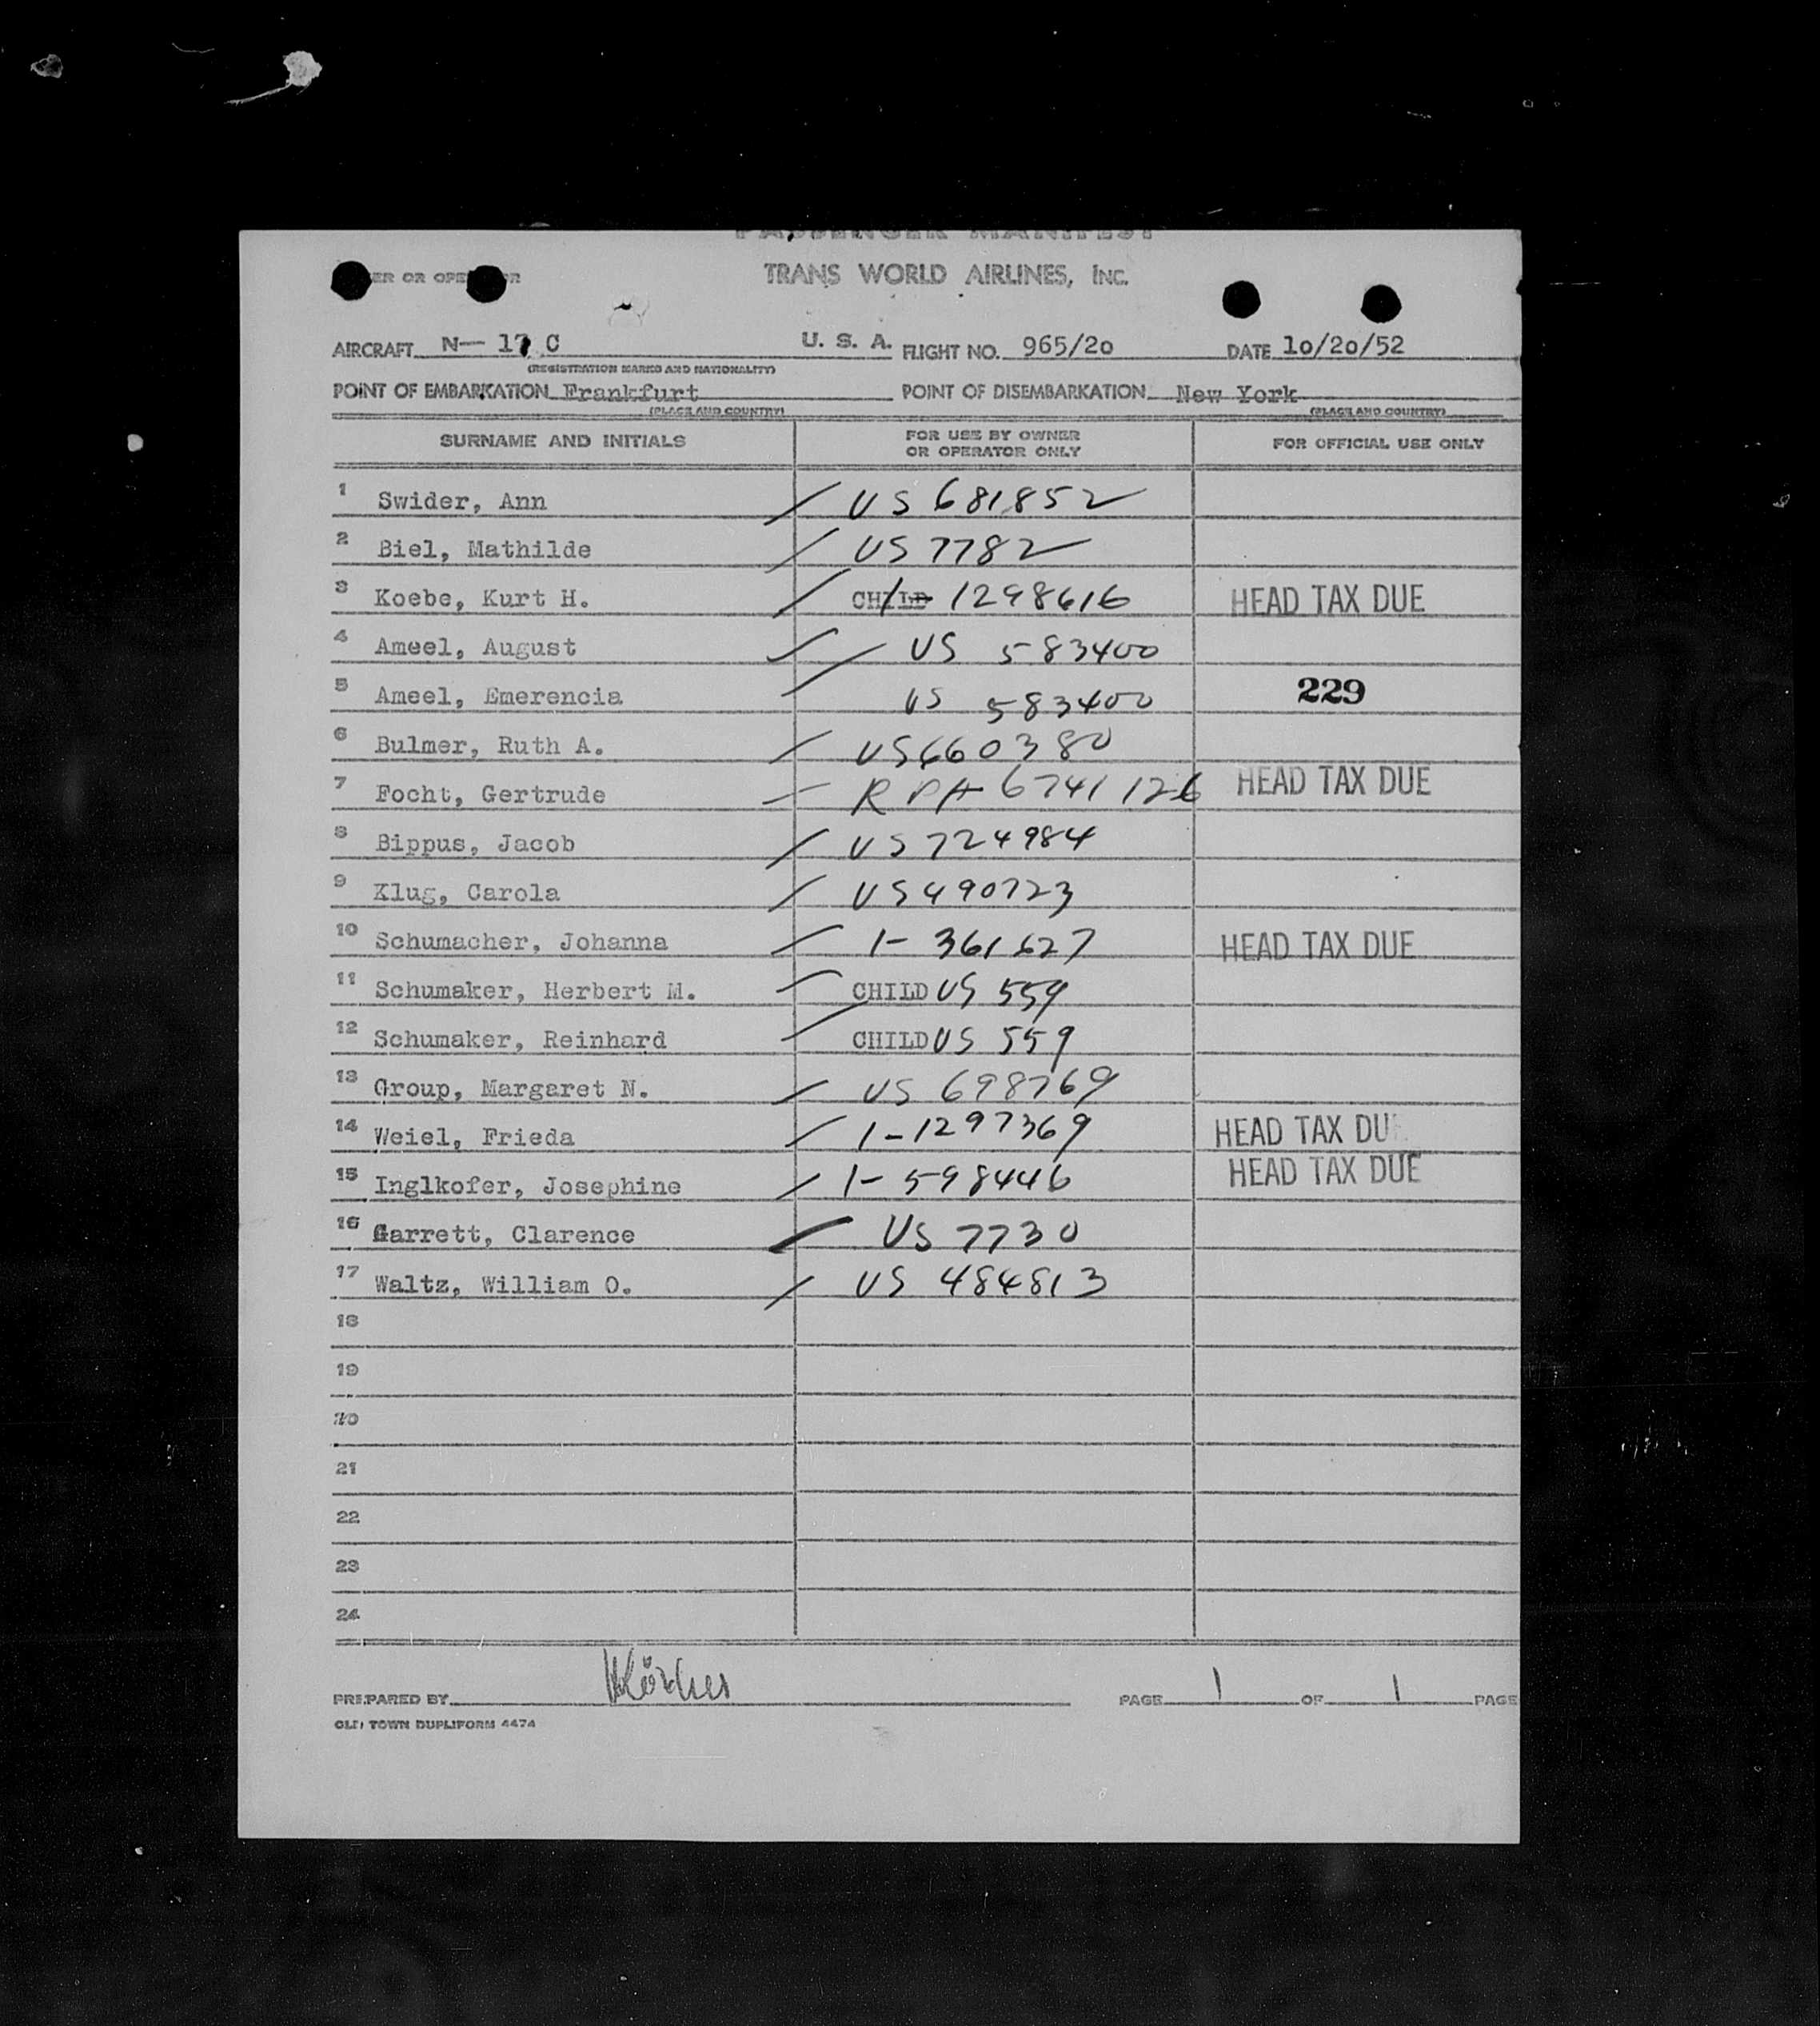 PASSENGER MANIFEST
TRANS WORLD AIRLINES, INC.
AIRCRAFT N— 17 C U. S. A. FLIGHT NO. 965/20 DATE 10/20/52
(REGISTRATION MARKS AND NATIONALITY)
POINT OF EMBARKATION Frankfurt POINT OF DISEMBARKATION New York
(PLACE AND COUNTRY) (PLACE AND COUNTRY)
SURNAME AND INITIALS FOR USE BY OWNER OR OPERATOR ONLY FOR OFFICIAL USE ONLY
1 Swider, Ann US 681852
2 Biel, Mathilde US 7782
3 Koebe, Kurt H. CHILD 1298616 HEAD TAX DUE
4 Ameel, August US 583400
5 Ameel, Emerencia US 583400 229
6 Bulmer, Ruth A. US 660380
7 Focht, Gertrude RPA 6741126 HEAD TAX DUE
8 Bippus, Jacob US 724984
9 Klug, Carola US 490723
10 Schumacher, Johanna 1- 361627 HEAD TAX DUE
11 Schumaker, Herbert M. CHILD US 559
12 Schumaker, Reinhard CHILD US 559
13 Group, Margaret N. US 698769
14 Weiel, Frieda 1-1297369 HEAD TAX DU
15 Inglkofer, Josephine 1- 598446 HEAD TAX DUE
16 Garrett, Clarence US 7730
17 Waltz, William O. US 484813
18
19
20
21
22
23
24
PREPARED BY PAGE 1 OF 1 PAGE
OLD TOWN DUPLIFORM 4474